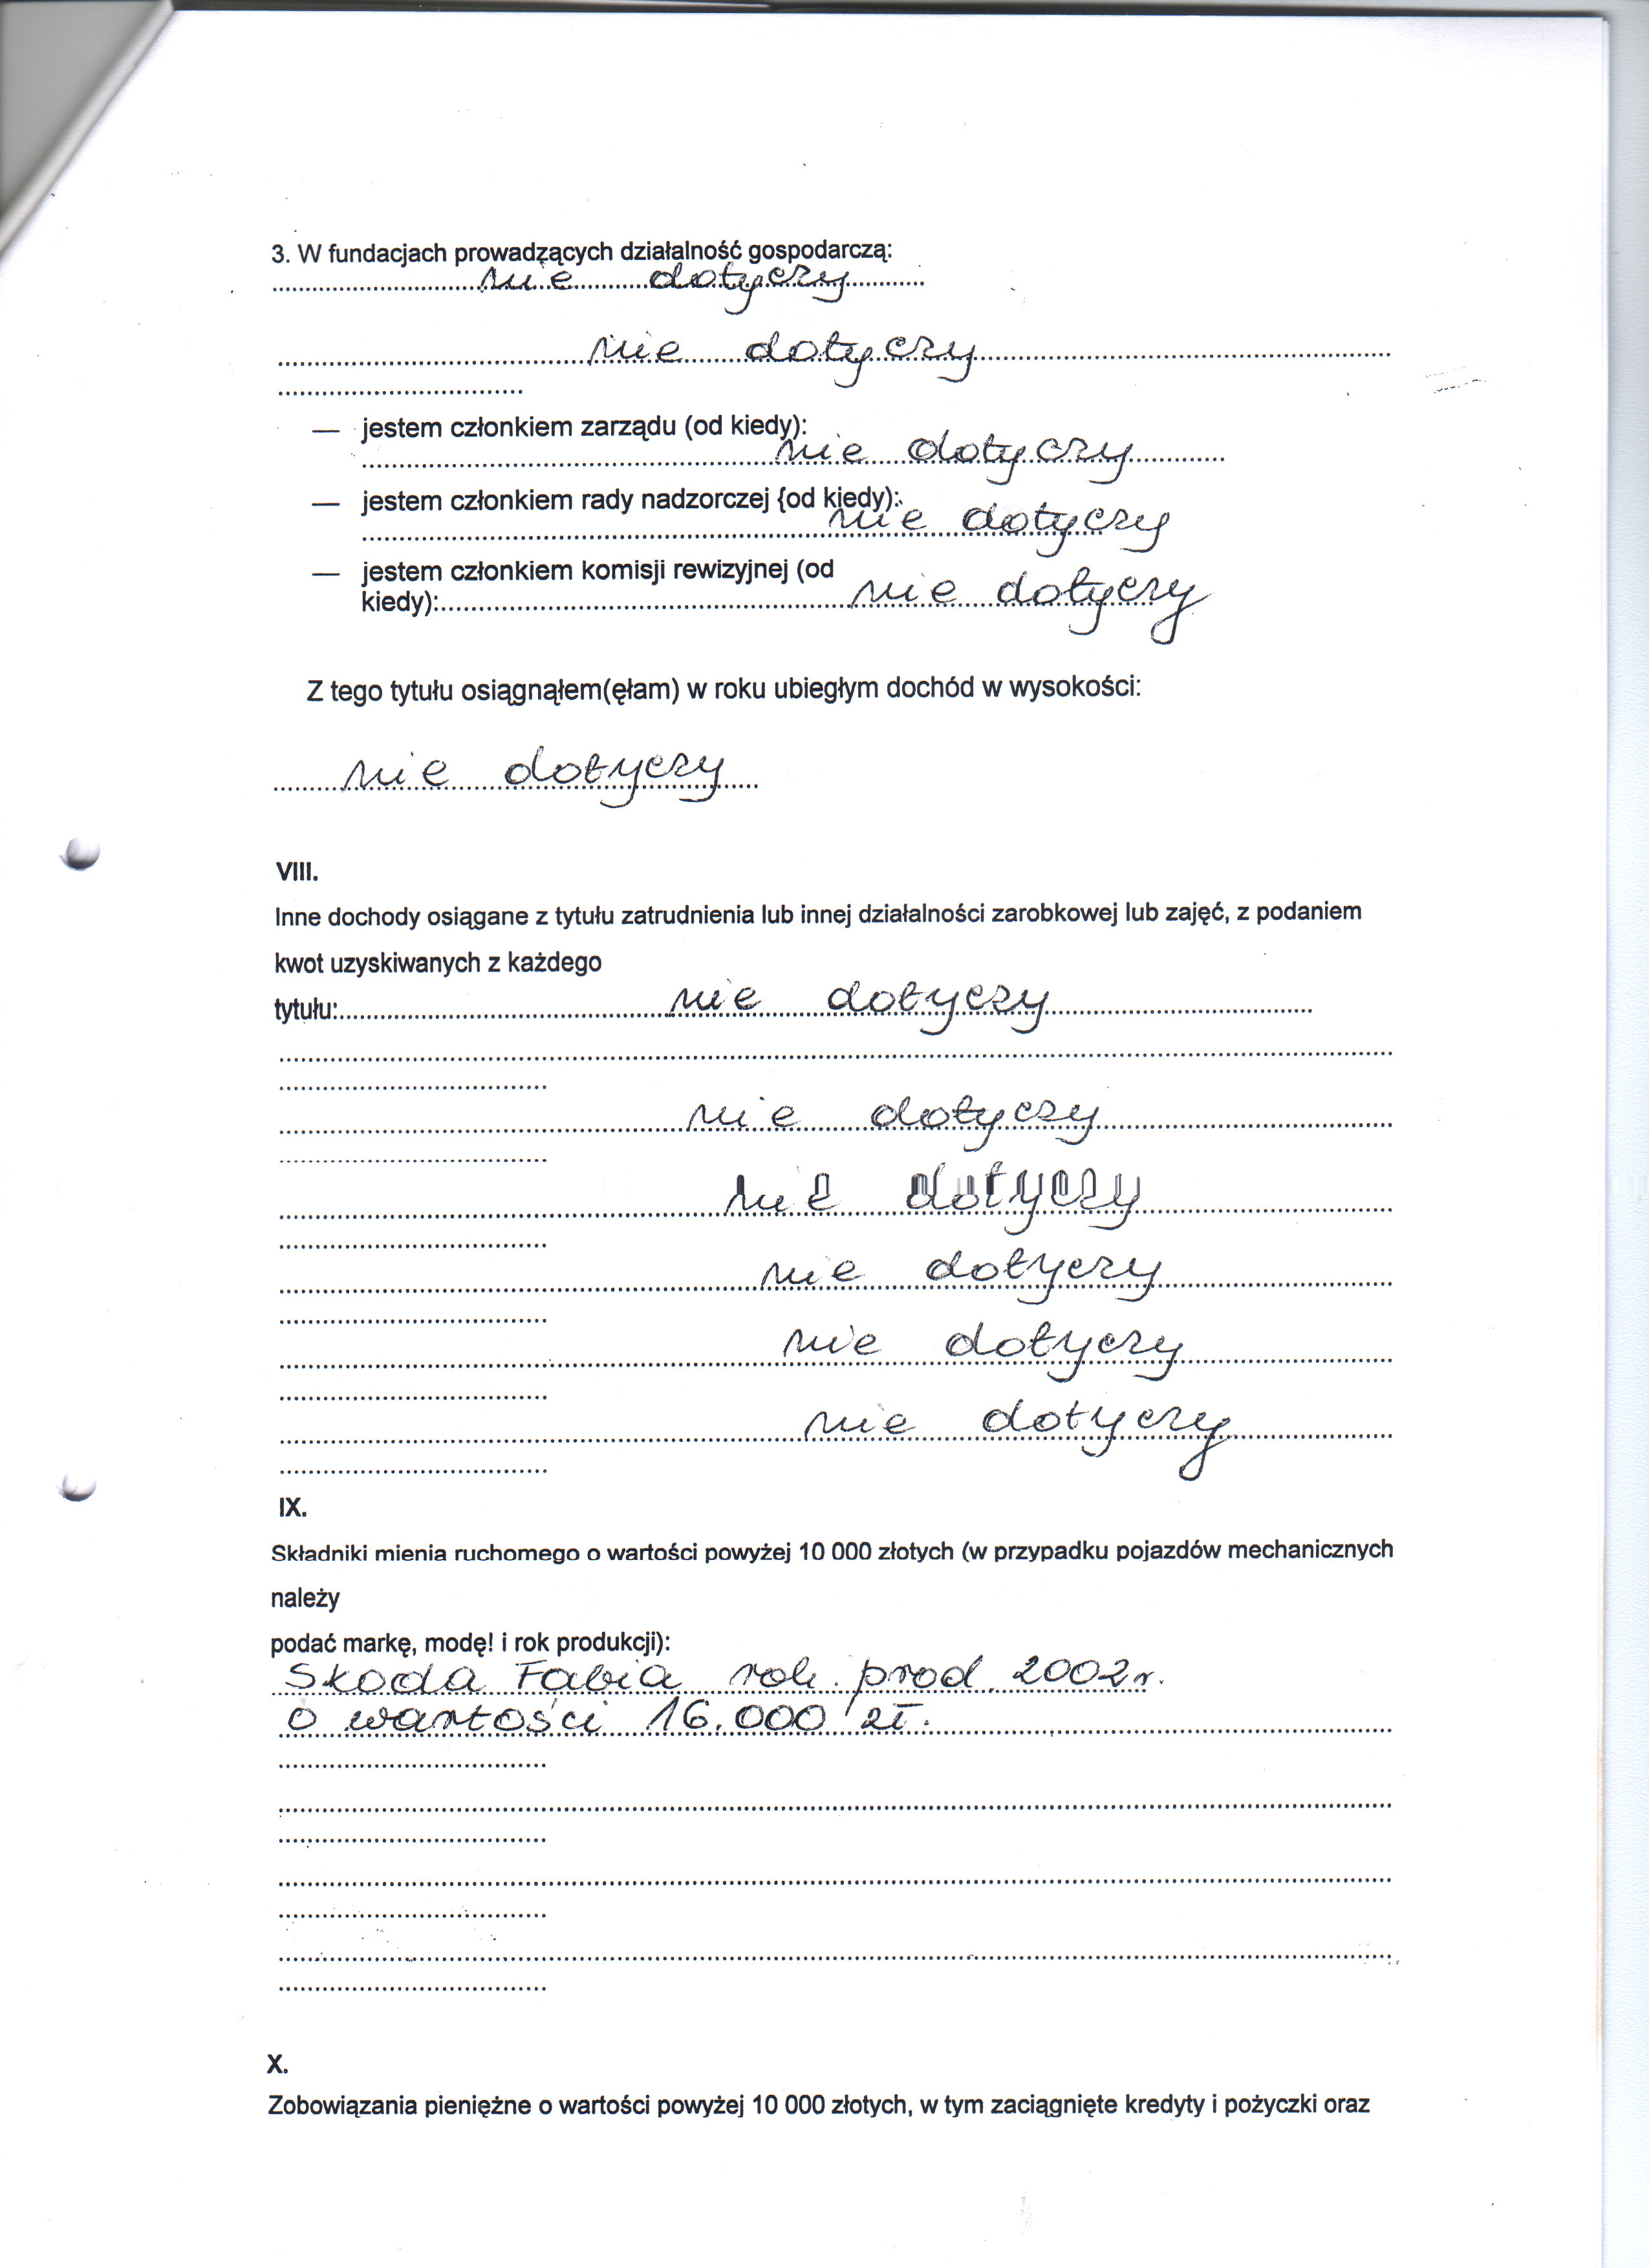 3. W fundacjach prowadzących działalność gospodarczą:
nie dotyczy
nie dotyczy
— jestem członkiem zarządu (od kiedy):
nie dotyczy
— jestem członkiem rady nadzorczej {od kiedy):
nie dotyczy
— jestem członkiem komisji rewizyjnej (od
kiedy):..........nie dotyczy
Z tego tytułu osiągnąłem(ęłam) w roku ubiegłym dochód w wysokości:
nie dotyczy
VIII.
Inne dochody osiągane z tytułu zatrudnienia lub innej działalności zarobkowej lub zajęć, z podaniem
kwot uzyskiwanych z każdego
tytułu:..........nie dotyczy
nie dotyczy
nie dotyczy
nie dotyczy
nie dotyczy
nie dotyczy
IX.
Składniki mienia ruchomego o wartości powyżej 10 000 złotych (w przypadku pojazdów mechanicznych
należy
podać markę, modę! i rok produkcji):
Skoda Fabia rok. prod. 2002r.
o wartości 16.000 zł.
X.
Zobowiązania pieniężne o wartości powyżej 10 000 złotych, w tym zaciągnięte kredyty i pożyczki oraz